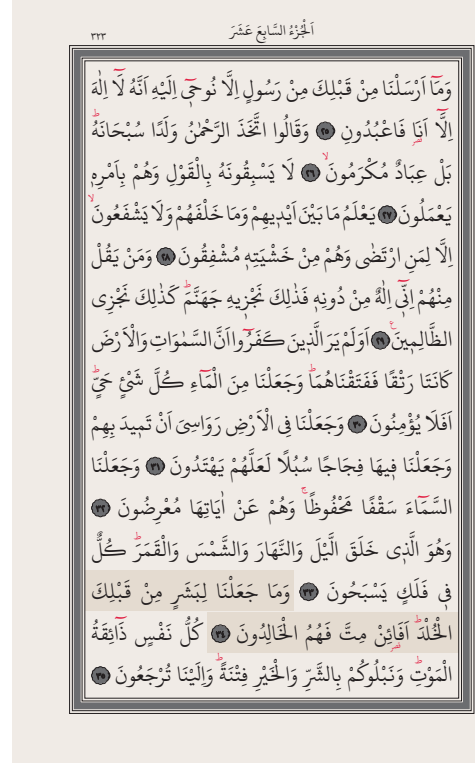 اَلْجُزْءُ السَّابِعَ عَشَرَ
٣٢٣
وَمَٓا اَرْسَلْنَا مِنْ قَبْلِكَ مِنْ رَسُولٍ اِلَّا نُوح۪ٓي اِلَيْهِ اَنَّهُ لَٓا اِلٰهَ
اِلَّٓا اَنَا۬ فَاعْبُدُونِ ﴿٢٥﴾ وَقَالُوا اتَّخَذَ الرَّحْمٰنُ وَلَدًا سُبْحَانَهُۜ
بَلْ عِبَادٌ مُكْرَمُونَۙ ﴿٢٦﴾ لَا يَسْبِقُونَهُ بِالْقَوْلِ وَهُمْ بِاَمْرِه۪
يَعْمَلُونَ ﴿٢٧﴾ يَعْلَمُ مَا بَيْنَ اَيْد۪يهِمْ وَمَا خَلْفَهُمْ وَلَا يَشْفَعُونَۙ
اِلَّا لِمَنِ ارْتَضٰى وَهُمْ مِنْ خَشْيَتِه۪ مُشْفِقُونَ ﴿٢٨﴾ وَمَنْ يَقُلْ
مِنْهُمْ اِنّ۪ٓي اِلٰهٌ مِنْ دُونِه۪ فَذٰلِكَ نَجْز۪يهِ جَهَنَّمَۜ كَذٰلِكَ نَجْزِي
الظَّالِم۪ينَ۟ ﴿٢٩﴾ اَوَلَمْ يَرَ الَّذ۪ينَ كَفَرُٓوا اَنَّ السَّمٰوَاتِ وَالْاَرْضَ
كَانَتَا رَتْقًا فَفَتَقْنَاهُمَاۜ وَجَعَلْنَا مِنَ الْمَٓاءِ كُلَّ شَيْءٍ حَيٍّۜ
اَفَلَا يُؤْمِنُونَ ﴿٣٠﴾ وَجَعَلْنَا فِي الْاَرْضِ رَوَاسِيَ اَنْ تَم۪يدَ بِهِمْ
وَجَعَلْنَا ف۪يهَا فِجَاجًا سُبُلًا لَعَلَّهُمْ يَهْتَدُونَ ﴿٣١﴾ وَجَعَلْنَا
السَّمَٓاءَ سَقْفًا مَحْفُوظًاۚ وَهُمْ عَنْ اٰيَاتِهَا مُعْرِضُونَ ﴿٣٢﴾
وَهُوَ الَّذ۪ي خَلَقَ الَّيْلَ وَالنَّهَارَ وَالشَّمْسَ وَالْقَمَرَۜ كُلٌّ
ف۪ي فَلَكٍ يَسْبَحُونَ ﴿٣٣﴾ وَمَا جَعَلْنَا لِبَشَرٍ مِنْ قَبْلِكَ
الْخُلْدَۜ اَفَا۬ئِنْ مِتَّ فَهُمُ الْخَالِدُونَ ﴿٣٤﴾ كُلُّ نَفْسٍ ذَٓائِقَةُ
الْمَوْتِۜ وَنَبْلُوكُمْ بِالشَّرِّ وَالْخَيْرِ فِتْنَةًۜ وَاِلَيْنَا تُرْجَعُونَ ﴿٣٥﴾